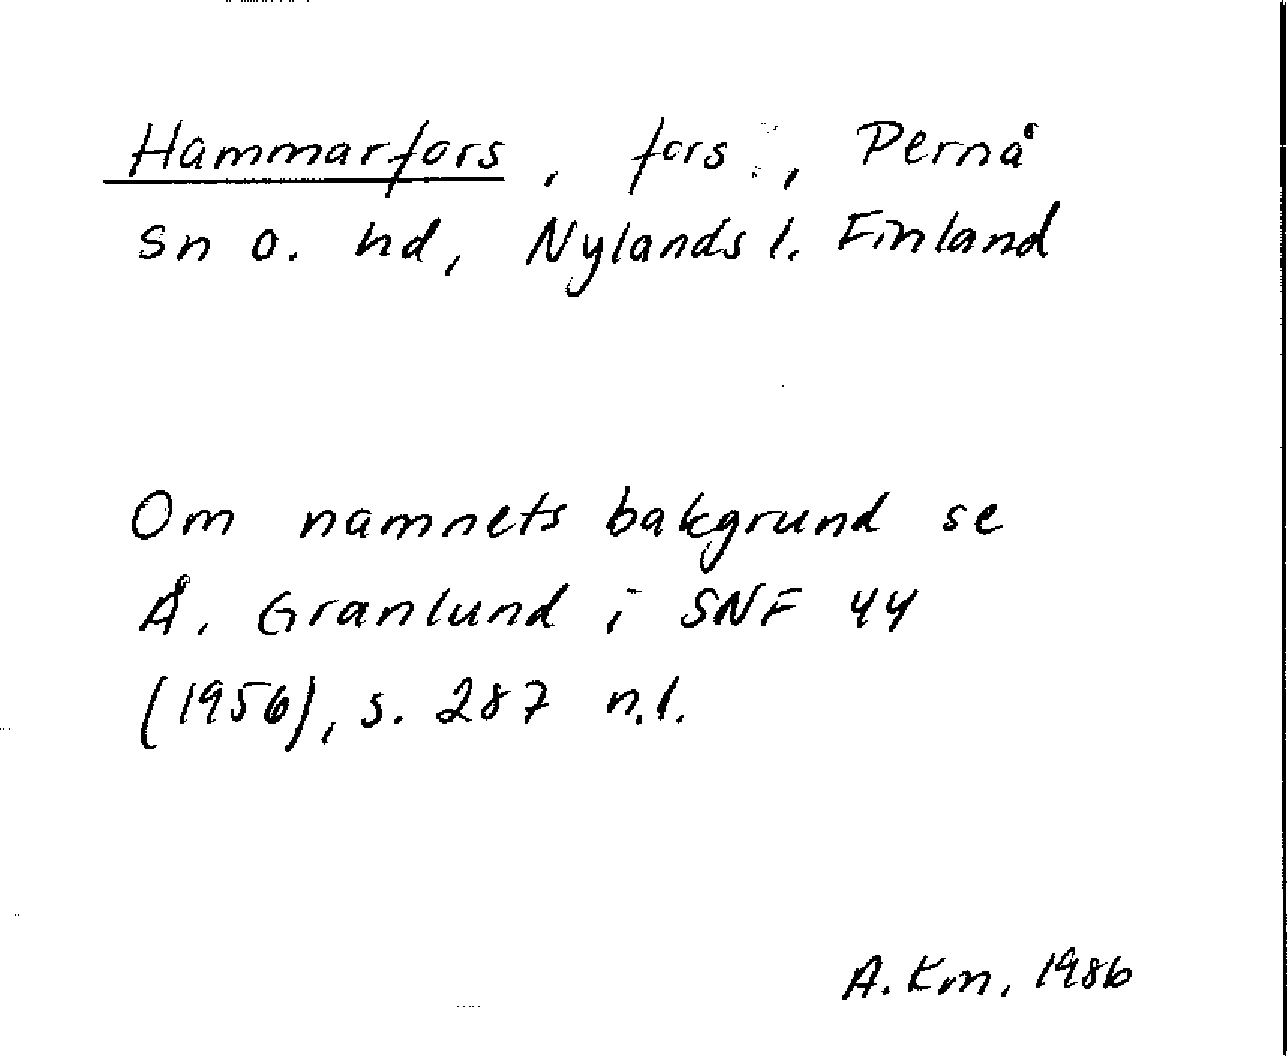 Hammarfors, fors, Pernå
sn o. hd, Nylands l. Finland
Om namnets bakgrund se
Å. Granlund i SNF 44
(1956), s. 287 n.l.
A. Km. 1986